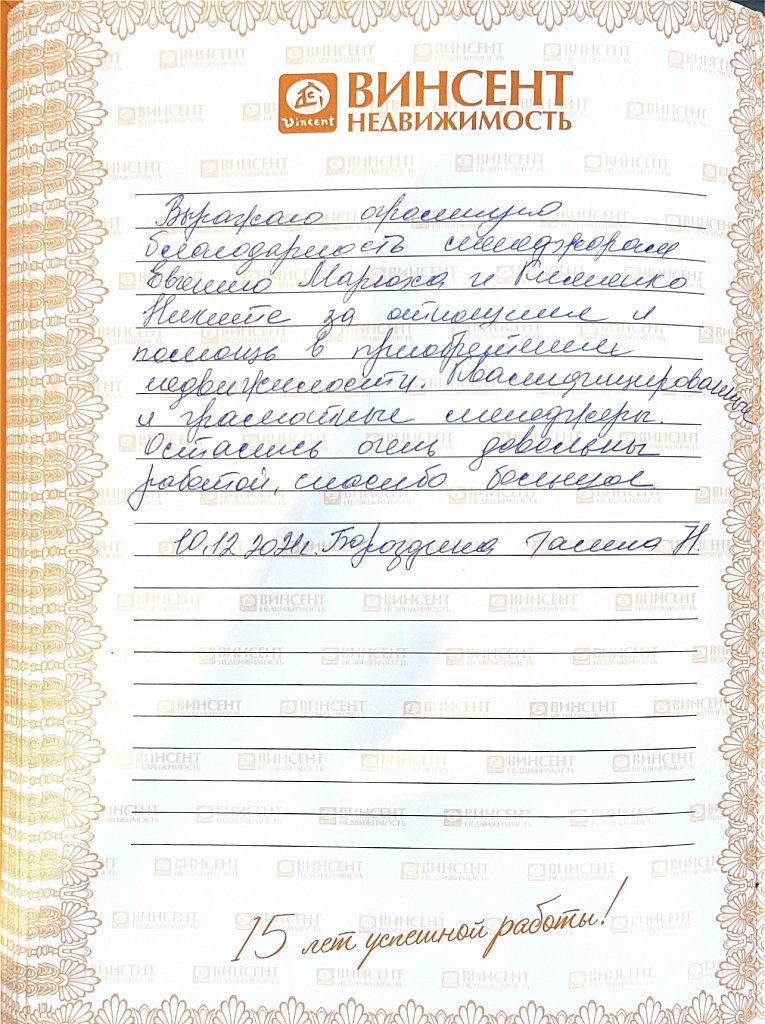 ВИНСЕНТ
НЕДВИЖИМОСТЬ
Vincent
Выражаю огромную
благодарность менеджорам
Евгению Марюха и Клименко
Никите за отношение и
помощь в приобретении
недвижимости. Квалифицированные
и грамотные менеджеры.
Остались очень довольны
работой, спасибо большое
10.12.2021г. Бороздина Галина Н.
15 лет успешной работы!